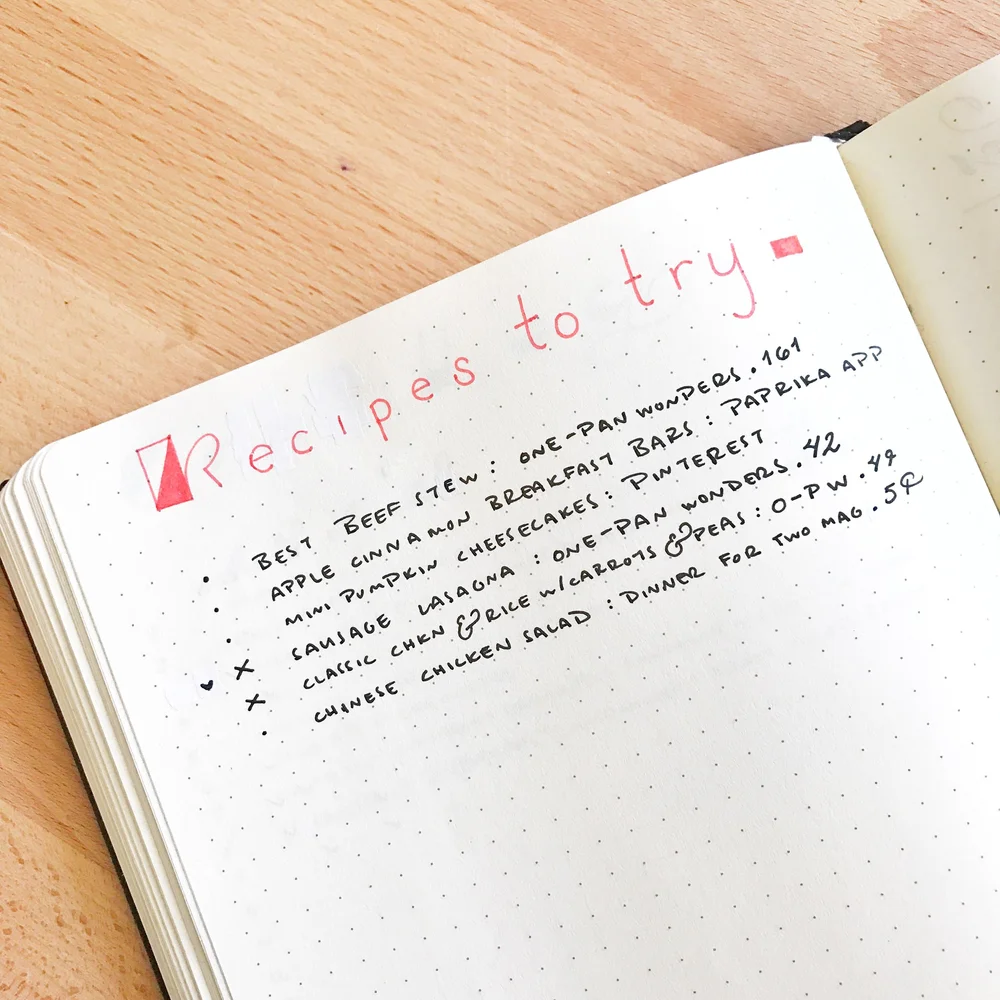 Recipes to try
• BEST BEEF STEW : ONE-PAN WONDERS . 161
• APPLE CINNAMON BREAKFAST BARS : PAPRIKA APP
• MINI PUMPKIN CHEESECAKES : PINTEREST
♥ X SAUSAGE LASAGNA : ONE-PAN WONDERS . 42
X CLASSIC CHKN & RICE W/CARROTS & PEAS : O-PW . 49
• CHINESE CHICKEN SALAD : DINNER FOR TWO MAG .